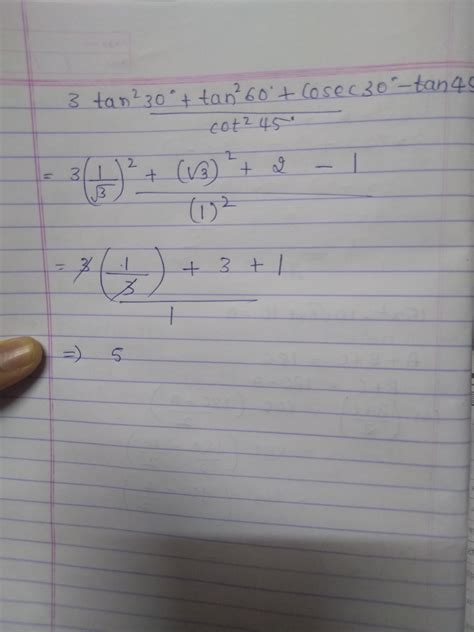 3 tan²30° + tan²60° + Cosec30° - tan45
cot²45°
= 3(1/√3)² + (√3)² + 2 - 1
(1)²
= 3(1/3) + 3 + 1
1
=) 5